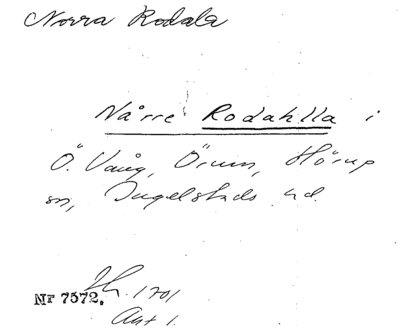 Norra Rodala
Nårre Rodahlla i
Ö. Vång, Örum, Hörup
sn, Ingelstads hd.
Nr 7572. Jh. 1701
Akt 1.